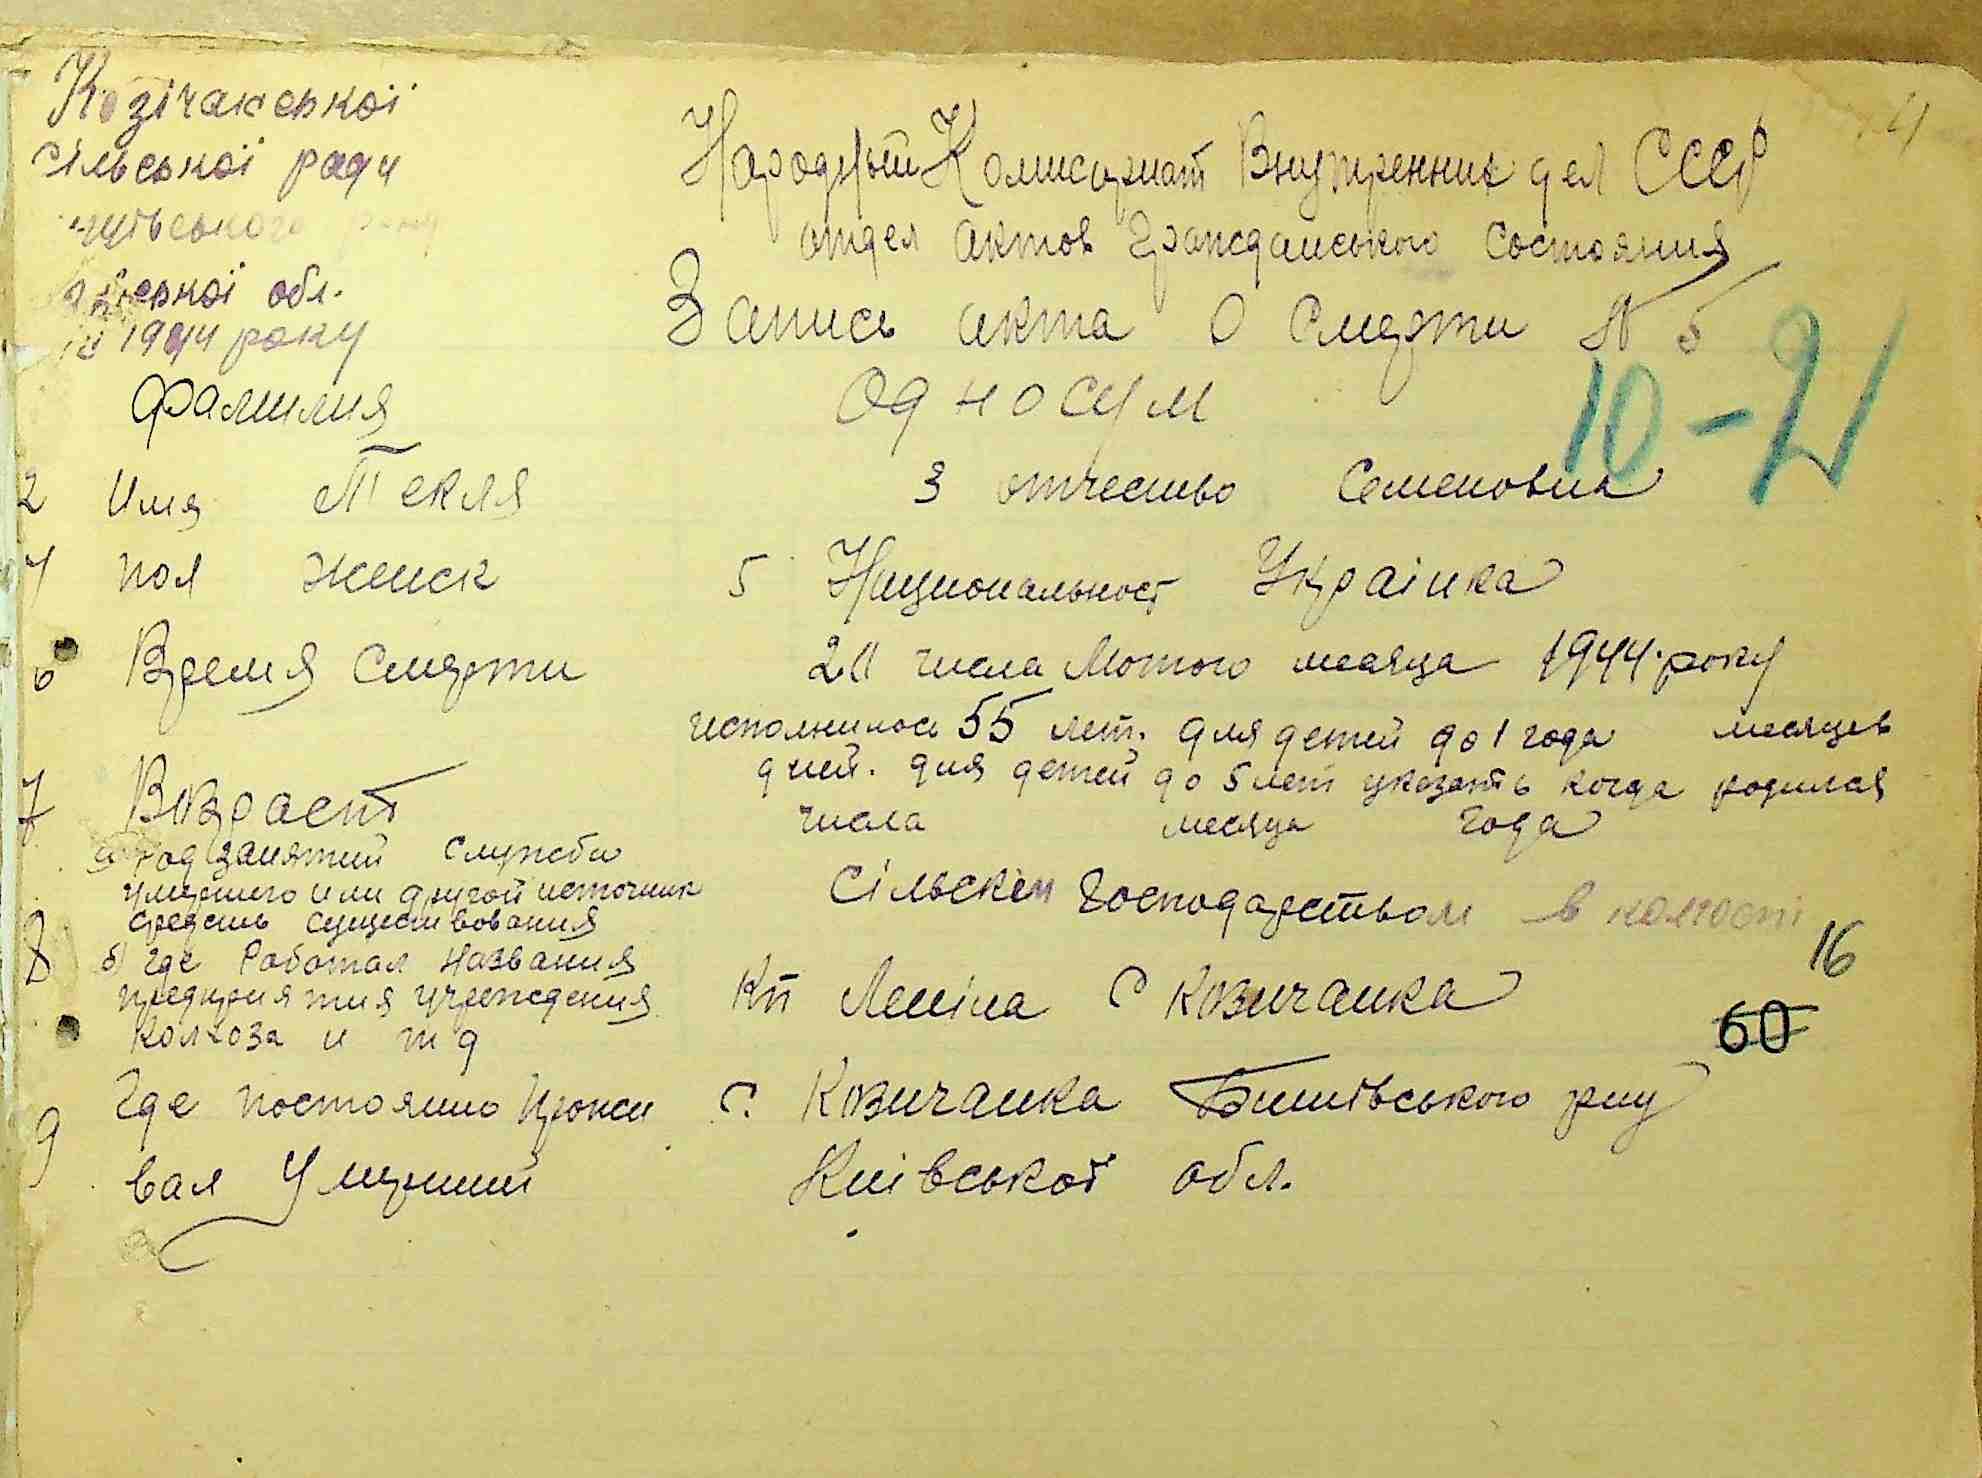 Козічанської
сільської ради
обл.
1944 року
4
Народный Комисариат Внутренних дел СССР
отдел актов Гражданського состояния
Запись акта о смерти № 5
10-21
Фамилия Односум
2 Имя Текля 3 отчество Семеновна
4 пол женск 5 Национальност Українка
6 Время смерти 21 числа Лютого месяца 1944 року
7 Возраст исполнилось 55 лет. для детей до 1 года месяцев
дней. для детей до 5 лет указать когда родился
числа месяца года
8 а) род занятий службы
умершего или другой источник
средств существования
Сільскім Господарством в колгоспі
16
б) где Работал названия
предприятия учреждения
колхоза и т д
Кп Леніна с Козичанка
60
9 Где постоянно прожи
вал Умерший
с. Козичанка Бишівського рну
Київської обл.